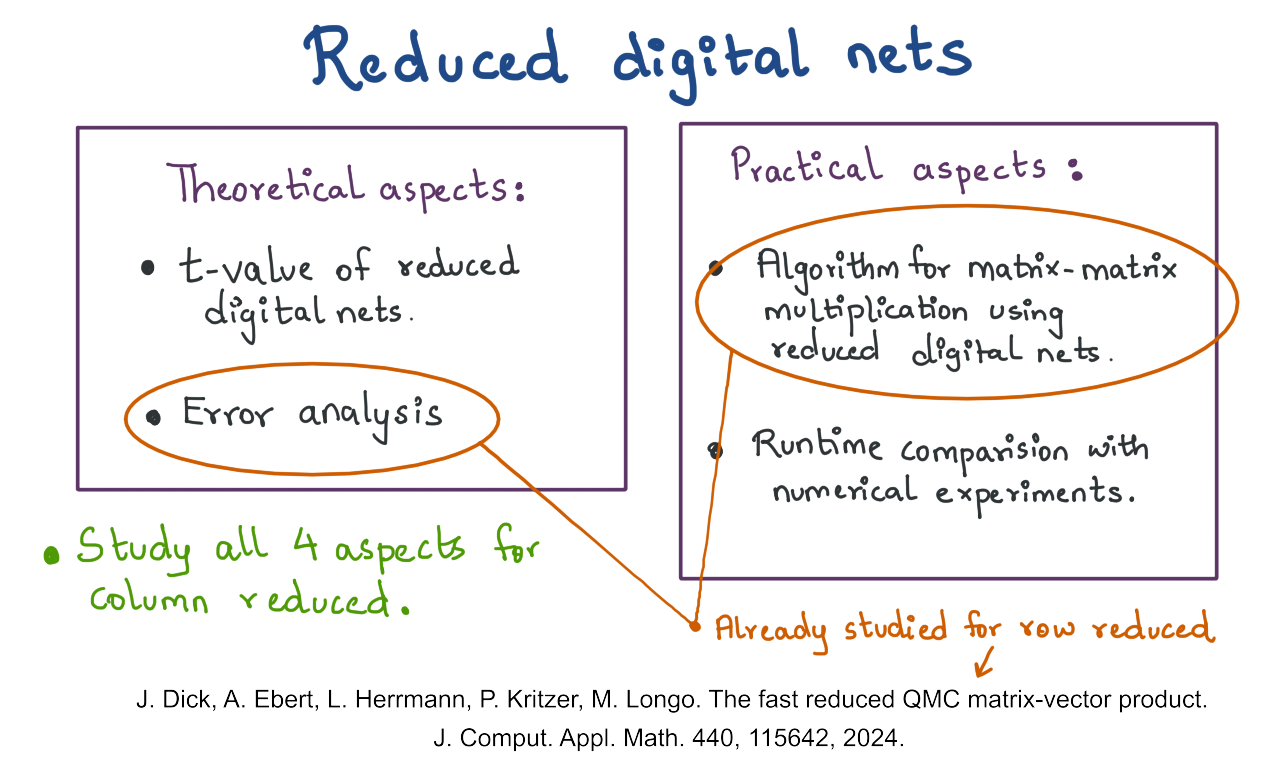 Reduced digital nets
Theoretical aspects:
• t-value of reduced
digital nets.
• Error analysis
Practical aspects :
• Algorithm for matrix-matrix
multiplication using
reduced digital nets.
• Runtime comparision with
numerical experiments.
• Study all 4 aspects for
column reduced.
Already studied for row reduced
J. Dick, A. Ebert, L. Herrmann, P. Kritzer, M. Longo. The fast reduced QMC matrix-vector product.
J. Comput. Appl. Math. 440, 115642, 2024.